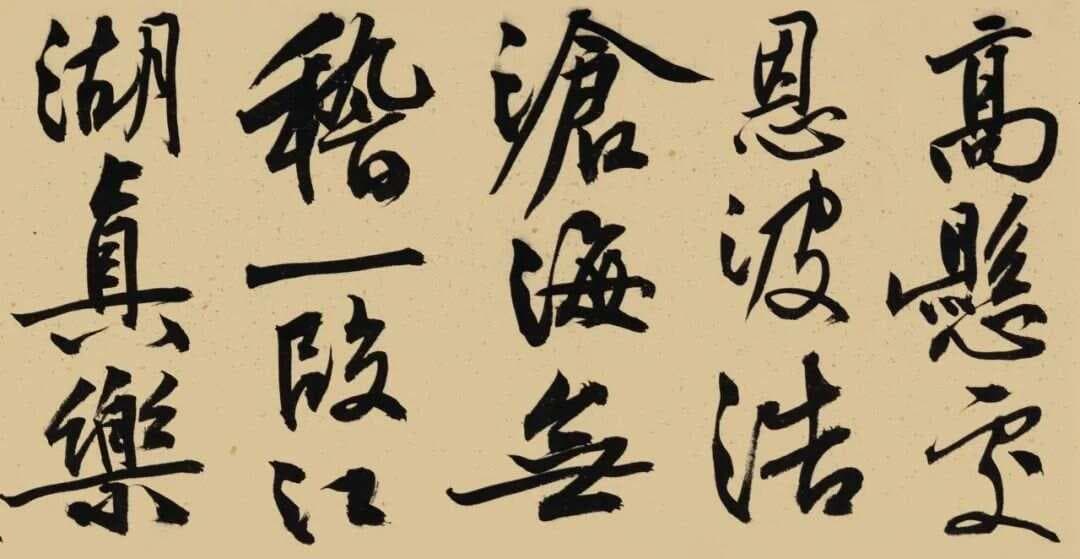 高懸處
恩波浩
滄海無
稽一段江
湖真樂